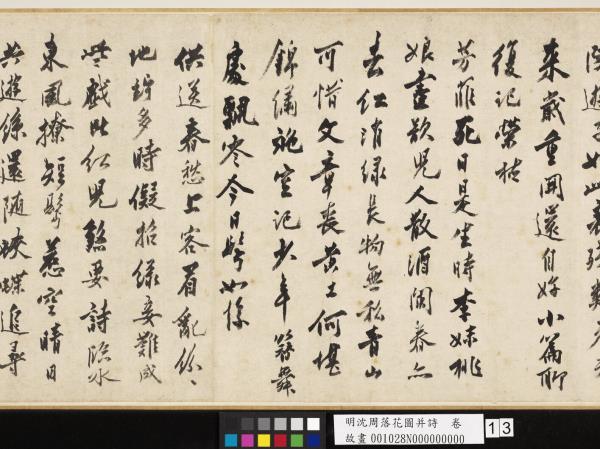 遊子如此衰殘類
來歲重開還自好小篇聊
復記榮枯
芳菲死日是生時李妹桃
娘盡欲兒人散酒闌春亦
去紅消綠長物無私青山
可惜文章喪黃土何堪
錦繡施空記少年簪舞
處飄零今日鬢如絲
供送春愁上客眉亂紛〻
地竚多時儗招綠妾難成
些戲比紅兒煞要詩臨水
東風撩短鬢惹空晴日
共遊絲還隨蛺蝶追尋
明沈周落花圖并詩 卷
故畫 001028N000000000
13